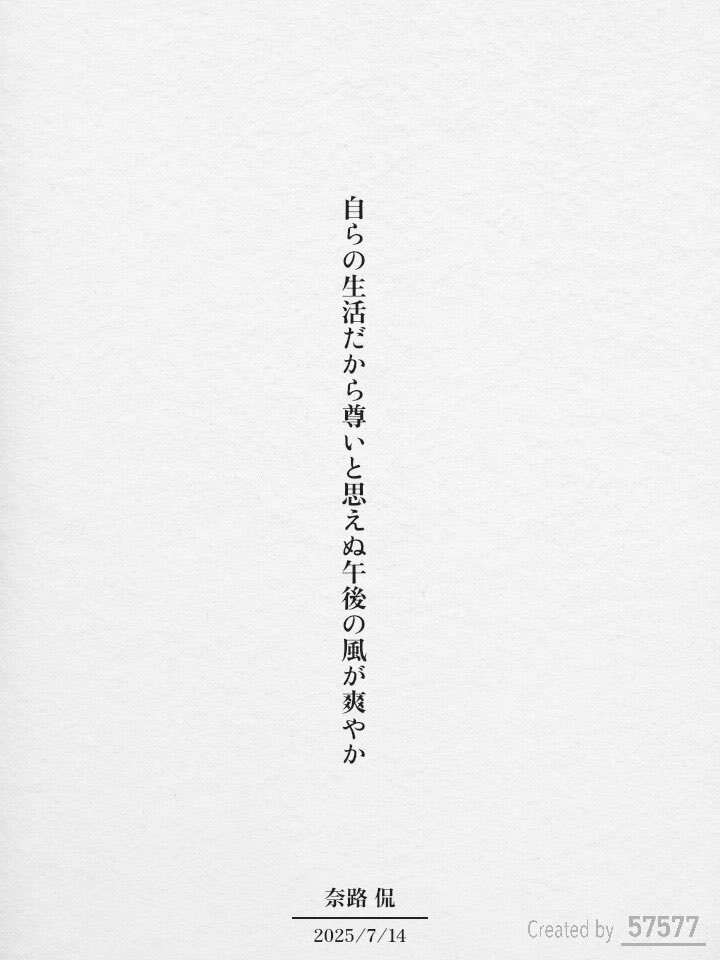 自らの生活だから尊いと思えぬ午後の風が爽やか
奈路 侃
2025/7/14
Created by 57577